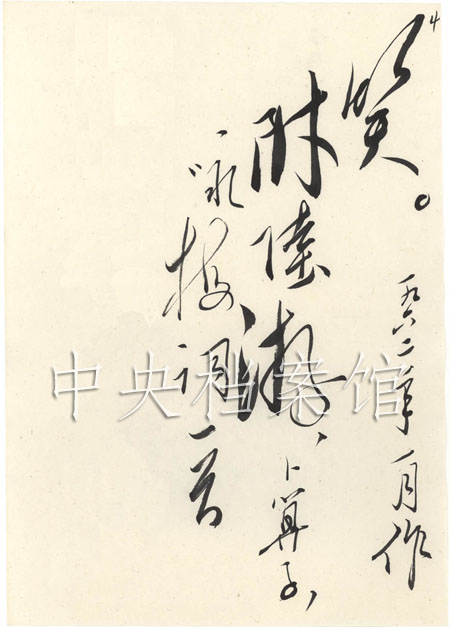 4
笑。
一九六二年一月作
附陆游、卜算子、
咏梅词一首
中央档案馆